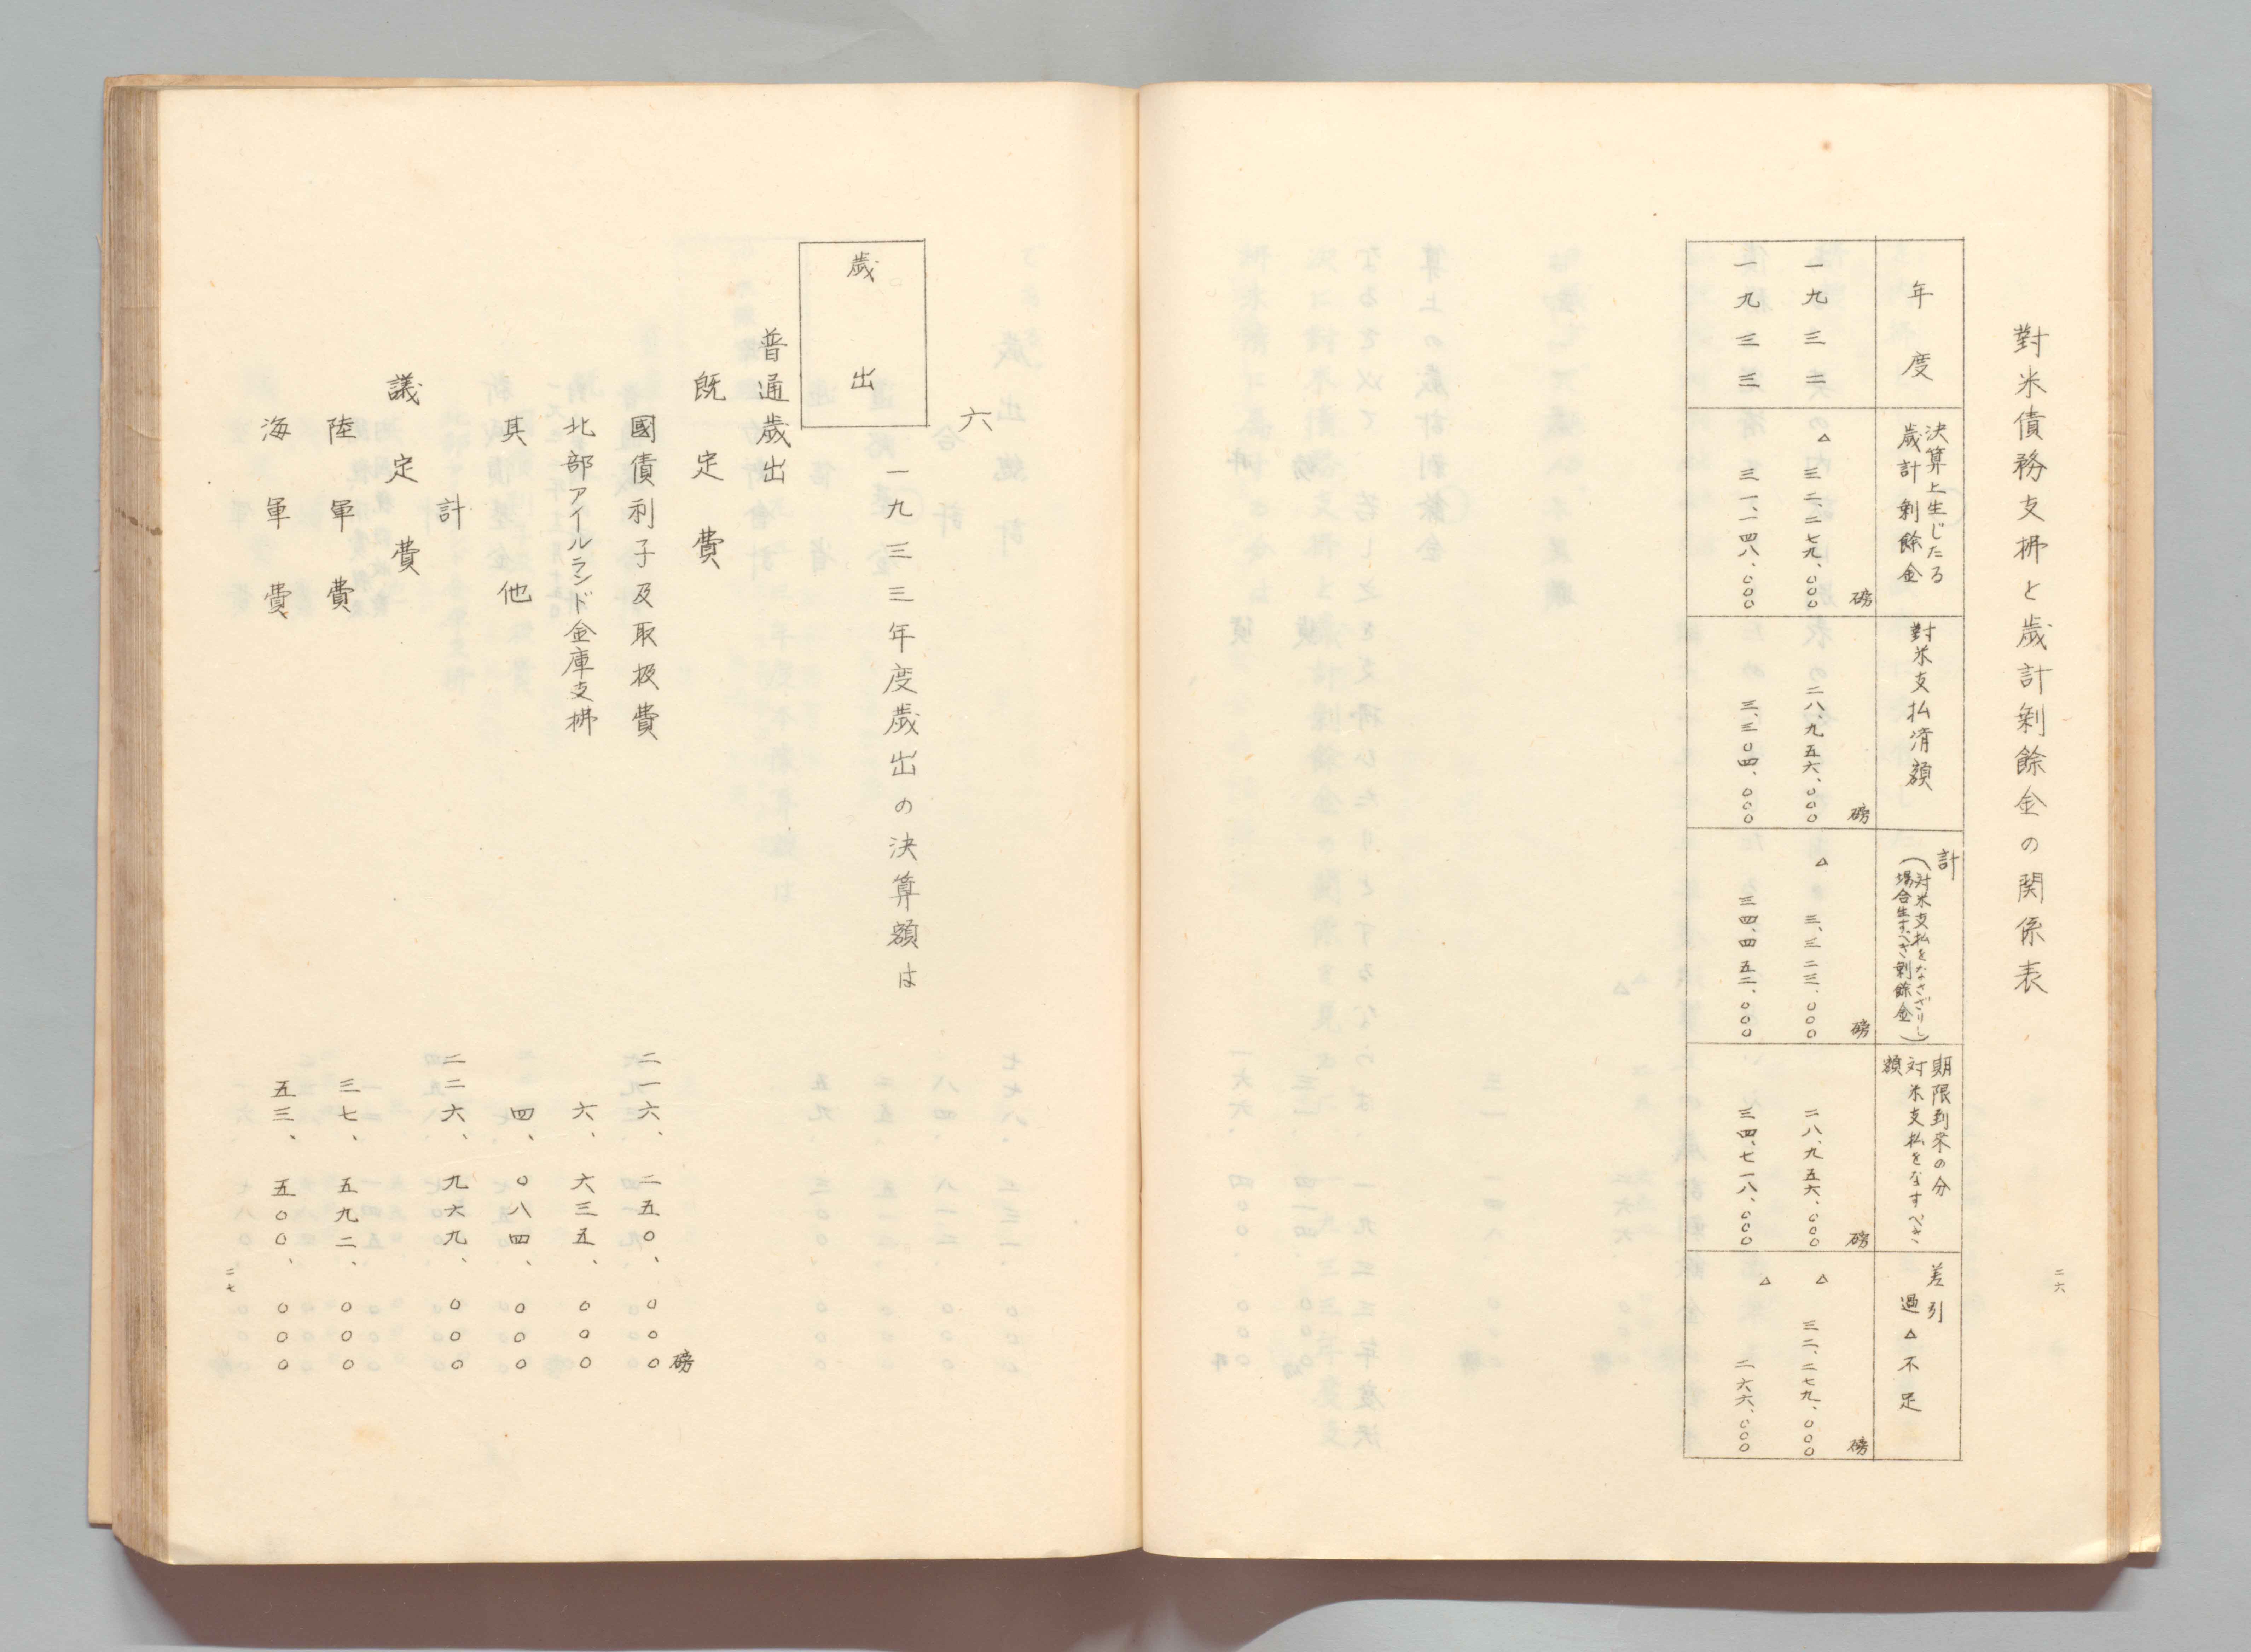 二六
對米債務支拂と歳計剰餘金の関係表
年度
決算上生じたる
歳計剰餘金
對米支払済額
計
(対米支払をなさざりし
場合生ずべき剰餘金)
期限到来の分
対米支払をなすべき
額
差引
過△不足
磅 磅 磅 磅 磅
一九三二 △三二、二七九、〇〇〇 二八、九五六、〇〇〇 △三、三二三、〇〇〇 二八、九五六、〇〇〇 △三二、二七九、〇〇〇
一九三三 三一、一四八、〇〇〇 三、三〇四、〇〇〇 三四、四五二、〇〇〇 三四、七一八、〇〇〇 △二六六、〇〇〇
六
一九三三年度歳出の決算額は
歳出
普通歳出
既定費
磅
國債利子及取扱費 二一六、二五〇、〇〇〇
北部アイルランド金庫支拂 六、六三五、〇〇〇
其他 四、〇八四、〇〇〇
計 二二六、九六九、〇〇〇
議定費
陸軍費 三七、五九二、〇〇〇
海軍費 五三、五〇〇、〇〇〇
二七